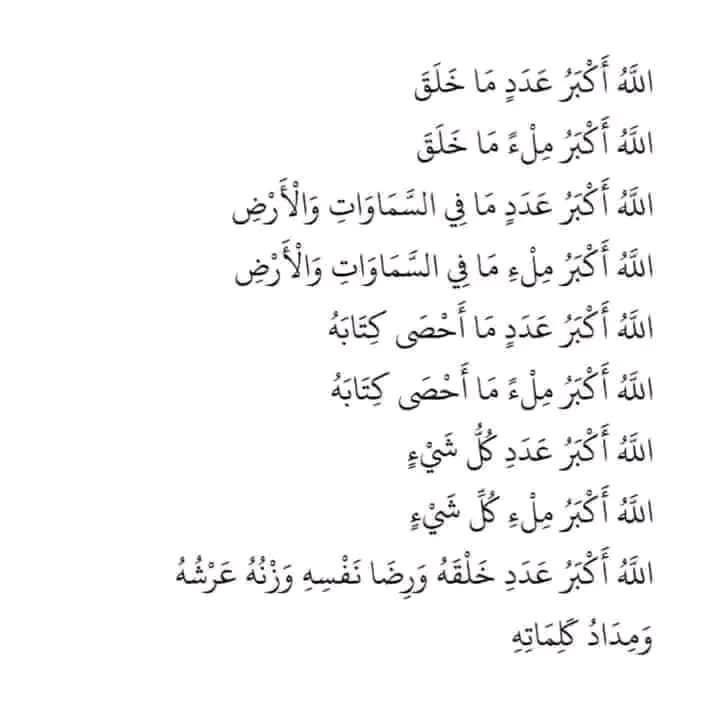 اللَّهُ أَكْبَرُ عَدَدٍ مَا خَلَقَ
اللَّهُ أَكْبَرُ مِلْءً مَا خَلَقَ
اللَّهُ أَكْبَرُ عَدَدٍ مَا فِي السَّمَاوَاتِ وَالْأَرْضِ
اللَّهُ أَكْبَرُ مِلْءِ مَا فِي السَّمَاوَاتِ وَالْأَرْضِ
اللَّهُ أَكْبَرُ عَدَدٍ مَا أَحْصَى كِتَابَهُ
اللَّهُ أَكْبَرُ مِلْءً مَا أَحْصَى كِتَابَهُ
اللَّهُ أَكْبَرُ عَدَدِ كُلُّ شَيْءٍ
اللَّهُ أَكْبَرُ مِلْءِ كُلِّ شَيْءٍ
اللَّهُ أَكْبَرُ عَدَدِ خَلْقَهُ وَرِضَا نَفْسِهِ وَزْنُهُ عَرْشُهُ
وَمِدَادُ كَلِمَاتِهِ